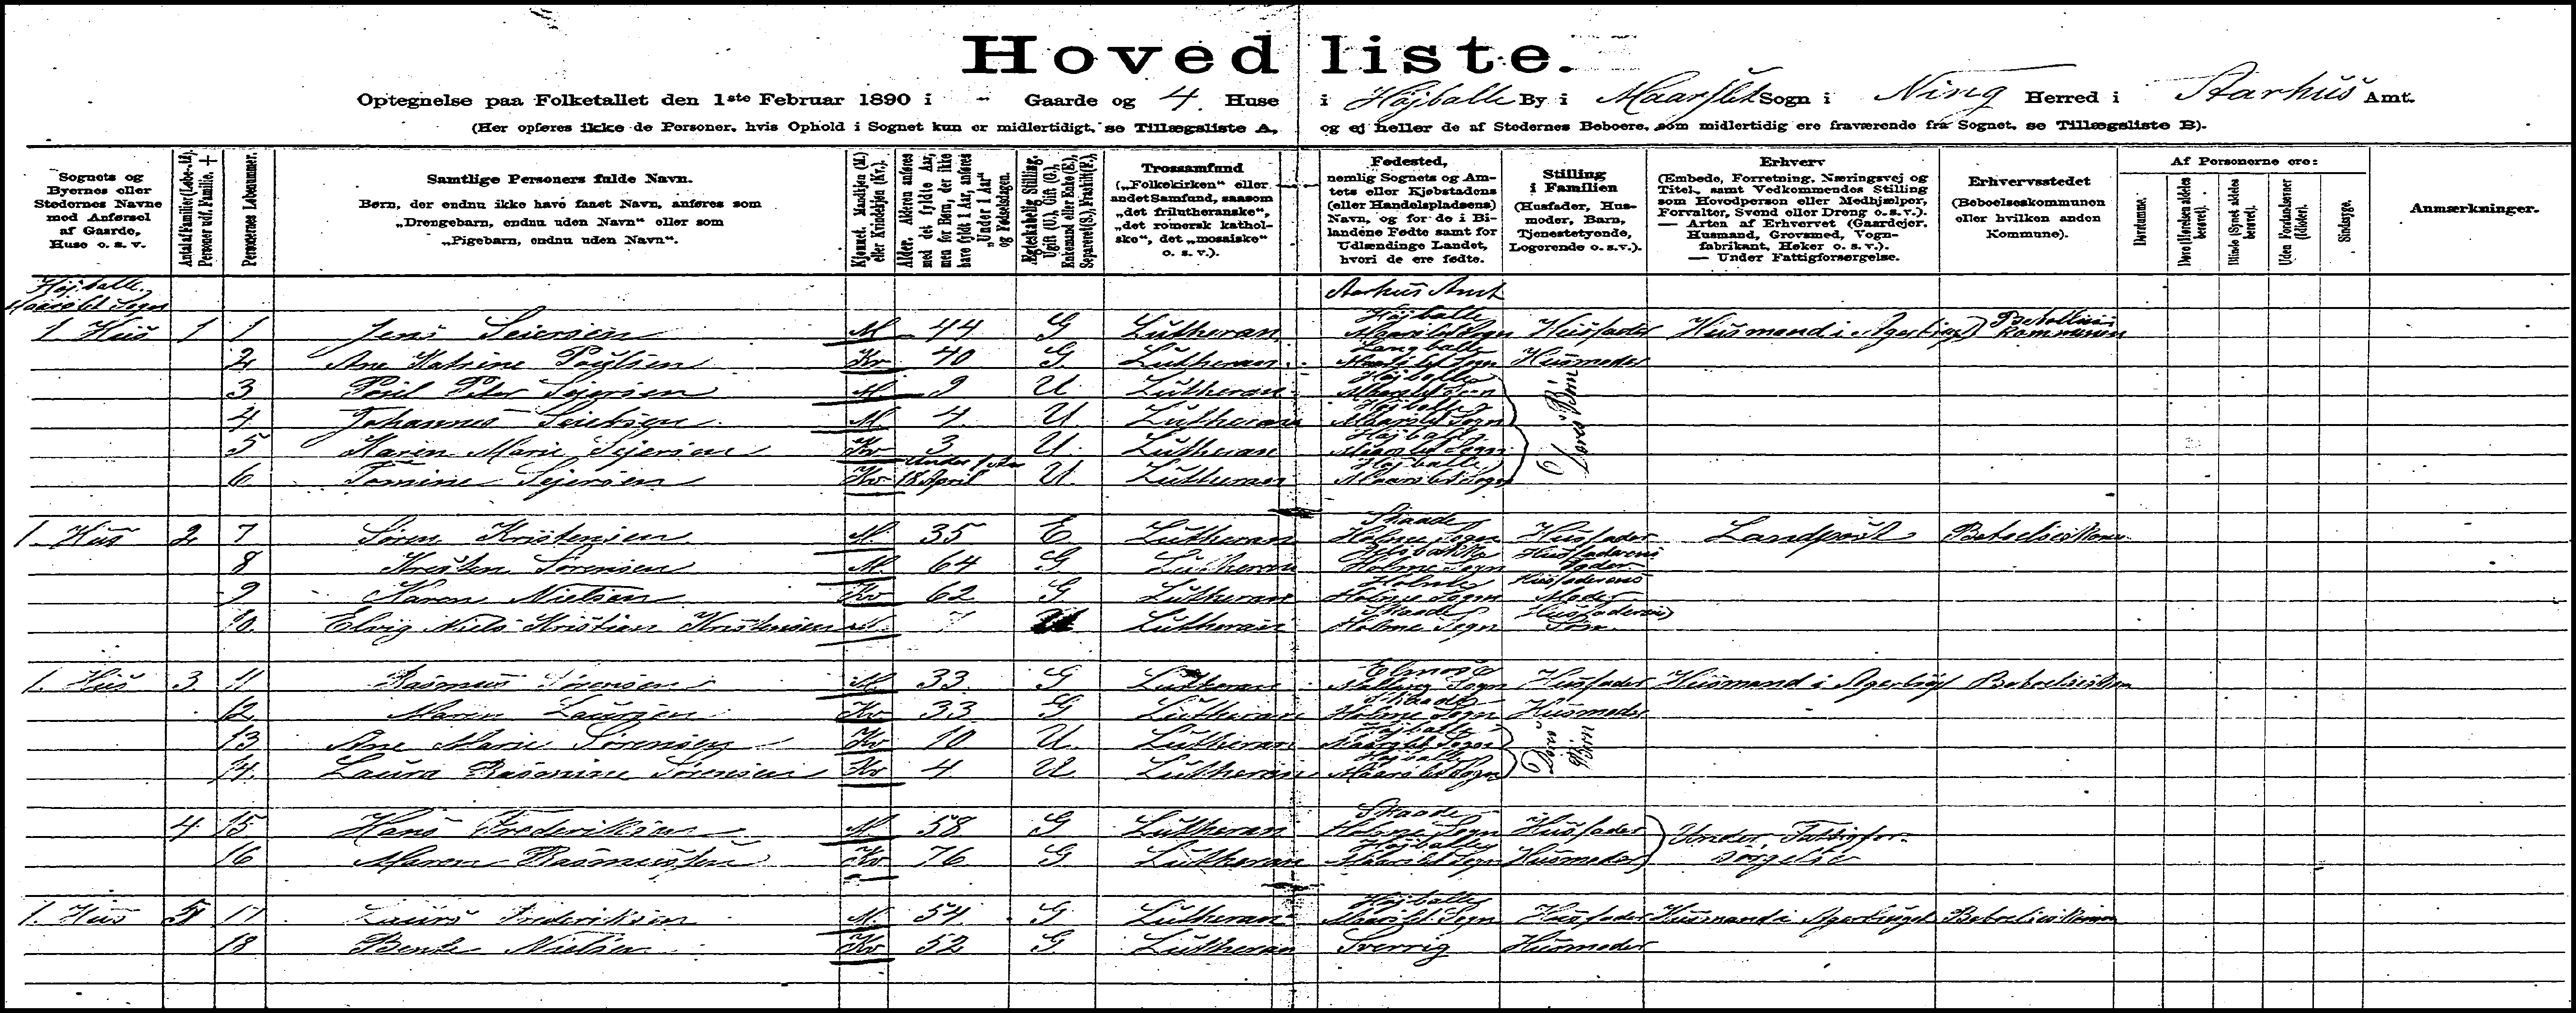 Hovedliste.
Optegnelse paa Folketallet den 1ste Februar 1890 i - Gaarde og 4 Huse i Højballe By i Maarslet Sogn i Ning Herred i Aarhus Amt.
(Her opføres ikke de Personer, hvis Ophold i Sognet kun er midlertidigt, se Tillægsliste A, og ej heller de af Stedernes Beboere, som midlertidig ere fraværende fra Sognet, se Tillægsliste B).
Sognets og Byernes eller Stedernes Navne med Anførsel af Gaarde, Huse o. s. v.
Samtlige Personers fulde Navn.
Børn, der endnu ikke have faaet Navn, anføres som
„Drengebarn, endnu uden Navn“ eller som
„Pigebarn, endnu uden Navn“.
Personernes Løbenummer.
Kjønnet. Mandkjøn (M.) eller Kvindekjøn (Kv.).
Alder. Alderen anføres med det fyldte Aar, men for Børn, der ikke have fyldt 1 Aar, anføres „Under 1 Aar“ og Fødselsdagen.
Ægteskabelig Stilling. Ugift (U.), Gift (G.), Enkemand eller Enke (E.), Separeret (S.), Fraskilt (F.).
Trossamfund („Folkekirken“ eller andet Samfund, saasom „det frilutheranske“, „det romersk katholske“, det „mosaiske“ o. s. v.).
Fødested, nemlig Sognets og Amtets eller Kjøbstadens (eller Handelspladsens) Navn, og for de i Bilandene Fødte samt for Udlændinge Landet, hvori de ere fødte.
Stilling i Familien (Husfader, Husmoder, Barn, Tjenestetyende, Logerende o. s. v.).
Erhverv (Embede, Forretning, Næringsvej og Titel, samt Vedkommendes Stilling som Hovedperson eller Medhjælper, Forvalter, Svend eller Dreng o. s. v.). — Arten af Erhvervet (Gaardejer, Husmand, Grovsmed, Vognfabrikant, Høker o. s. v.). — Under Fattigforsørgelse.
Erhvervsstedet (Beboelseskommunen eller hvilken anden Kommune).
Af Personerne ere:
Døvstumme.
Døve (Hørelsen aldeles berøvet).
Blinde (Synet aldeles berøvet).
Uden Forstandsevner (Idioter).
Sindssyge.
Anmærkninger.
Højballe Maarslet Sogn
Aarhus Amt
1 Hus 1 1 Jens Seiersen M 44 G Lutheran Højballe Maarslet Sogn Husfader Husmand i Agerbrug Kommunen
2 Ane Katrine Poulsen Kv 40 G Lutheran Maarslet Sogn Husmoder
3 Poul Peter Sejersen M 9 U Lutheran Højballe Maarslet Sogn
4 Johannes M 4 U Lutheran Højballe Maarslet Sogn
Deres Børn
5 Karen Marie Sejersen Kv 3 U Lutheran Højballe Maarslet Sogn
6 Sejersen Kv Under 1 Aar 18 April U Lutheran Højballe Maarslet Sogn
1 Hus 2 7 Søren Kristensen M 35 E Lutheran Skaade Holme Sogn Husfader Landpost
8 Kresten Sørensen M 64 G Lutheran Holme Sogn Husfaderens Fader
9 Karen Nielsen Kv 62 G Lutheran Holme Sogn Husfaderens Moder
10 Niels Kristian Kristensen M 7 U Lutheran Skaade Holme Sogn Husfaderens Søn
1 Hus 3 11 Rasmus Sørensen M 33 G Lutheran Malling Sogn Husfader Husmand i Agerbrug
12 Maren Laursen Kv 33 G Lutheran Skaade Holme Sogn Husmoder
13 Ane Marie Sørensen Kv 10 U Lutheran Højballe Maarslet Sogn
Deres Børn
14 Laura Rasmine Sørensen Kv 4 U Lutheran Højballe Maarslet Sogn
4 15 Hans Frederiksen M 58 G Lutheran Skaade Holme Sogn Husfader Under Fattigfor-
16 Maren Rasmussen Kv 76 G Lutheran Højballe Maarslet Sogn Husmoder sørgelse
1 Hus 5 17 Laurs Frederiksen M 54 G Lutheran Højballe Maarslet Sogn Husfader Husmand i Agerbruget
18 Bente Nielsen Kv 52 G Lutheran Sverrig Husmoder